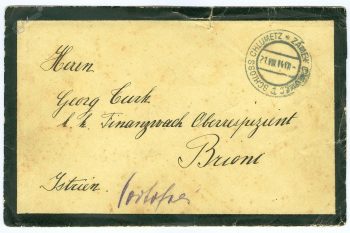 SCHLOSS CHLUMETZ * ZÁMEK CHLUMEC *
21.VIII.14
Herrn
Georg
k. k. Finanzwach Oberrespizient
Brioni
Istrien. Portofrei